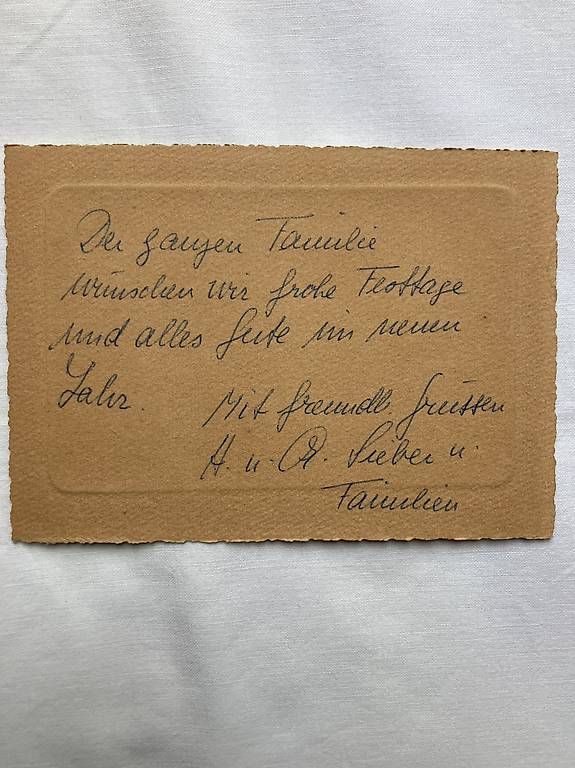 Der ganzen Familie
wünschen wir frohe Festtage
und alles Gute im neuen
Jahr. Mit freundl. Grüssen
H. u. A. Sieber u.
Familien